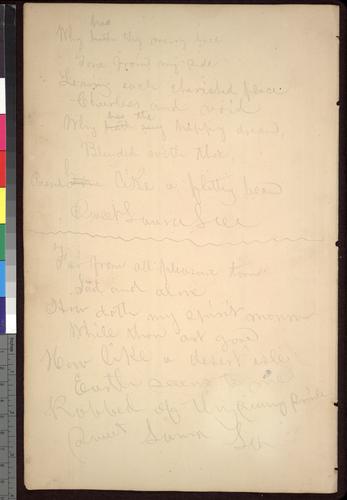 has
Why hath thy merry face
Gone from my side
Leaving each cherished place
Cheerless and void
has the
Why hath my happy dream
Blended with thee
like a fleeting beam
Sweet Laura Lee
Far from all pleasure torn
Sad and alone
How doth my spirit mourn
While thou art gone
How like a desert isle
Earth seems to me
Robbed of thy
Sweet Laura Lee